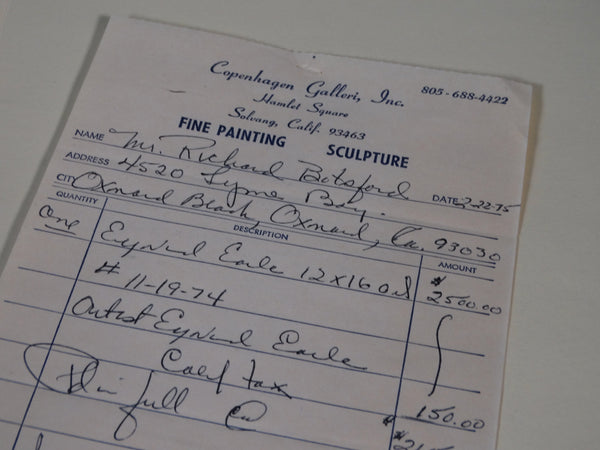 Copenhagen Galleri, Inc. 805-688-4422
Hamlet Square
Solvang, Calif. 93463
FINE PAINTING SCULPTURE
NAME Mr. Richard Botsford DATE 2-22-75
ADDRESS 4520 Tyme Bay.
CITY Oxnard Beach, Oxnard, Ca. 93030
QUANTITY DESCRIPTION AMOUNT
One Eyvind Earle 12x16 oil $2500.00
# 11-19-74
Artist Eyvind Earle
Calif tax 150.00
Pd in full